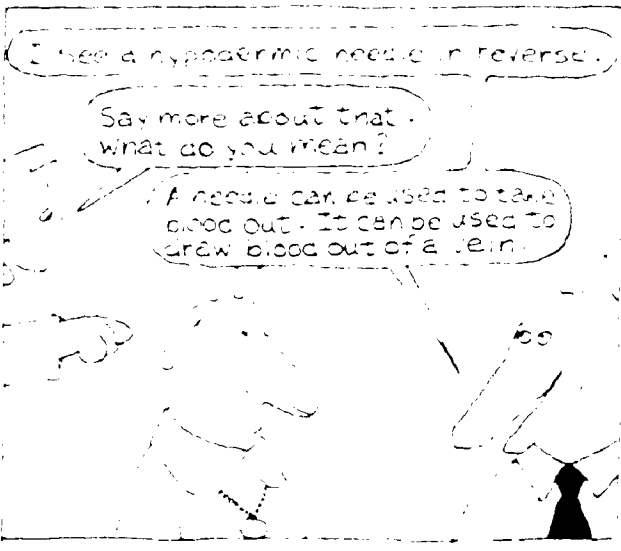 I see a hypodermic needle in reverse.
Say more about that.
What do you mean?
A needle can be used to take
blood out. It can be used to
draw blood out of a vein.